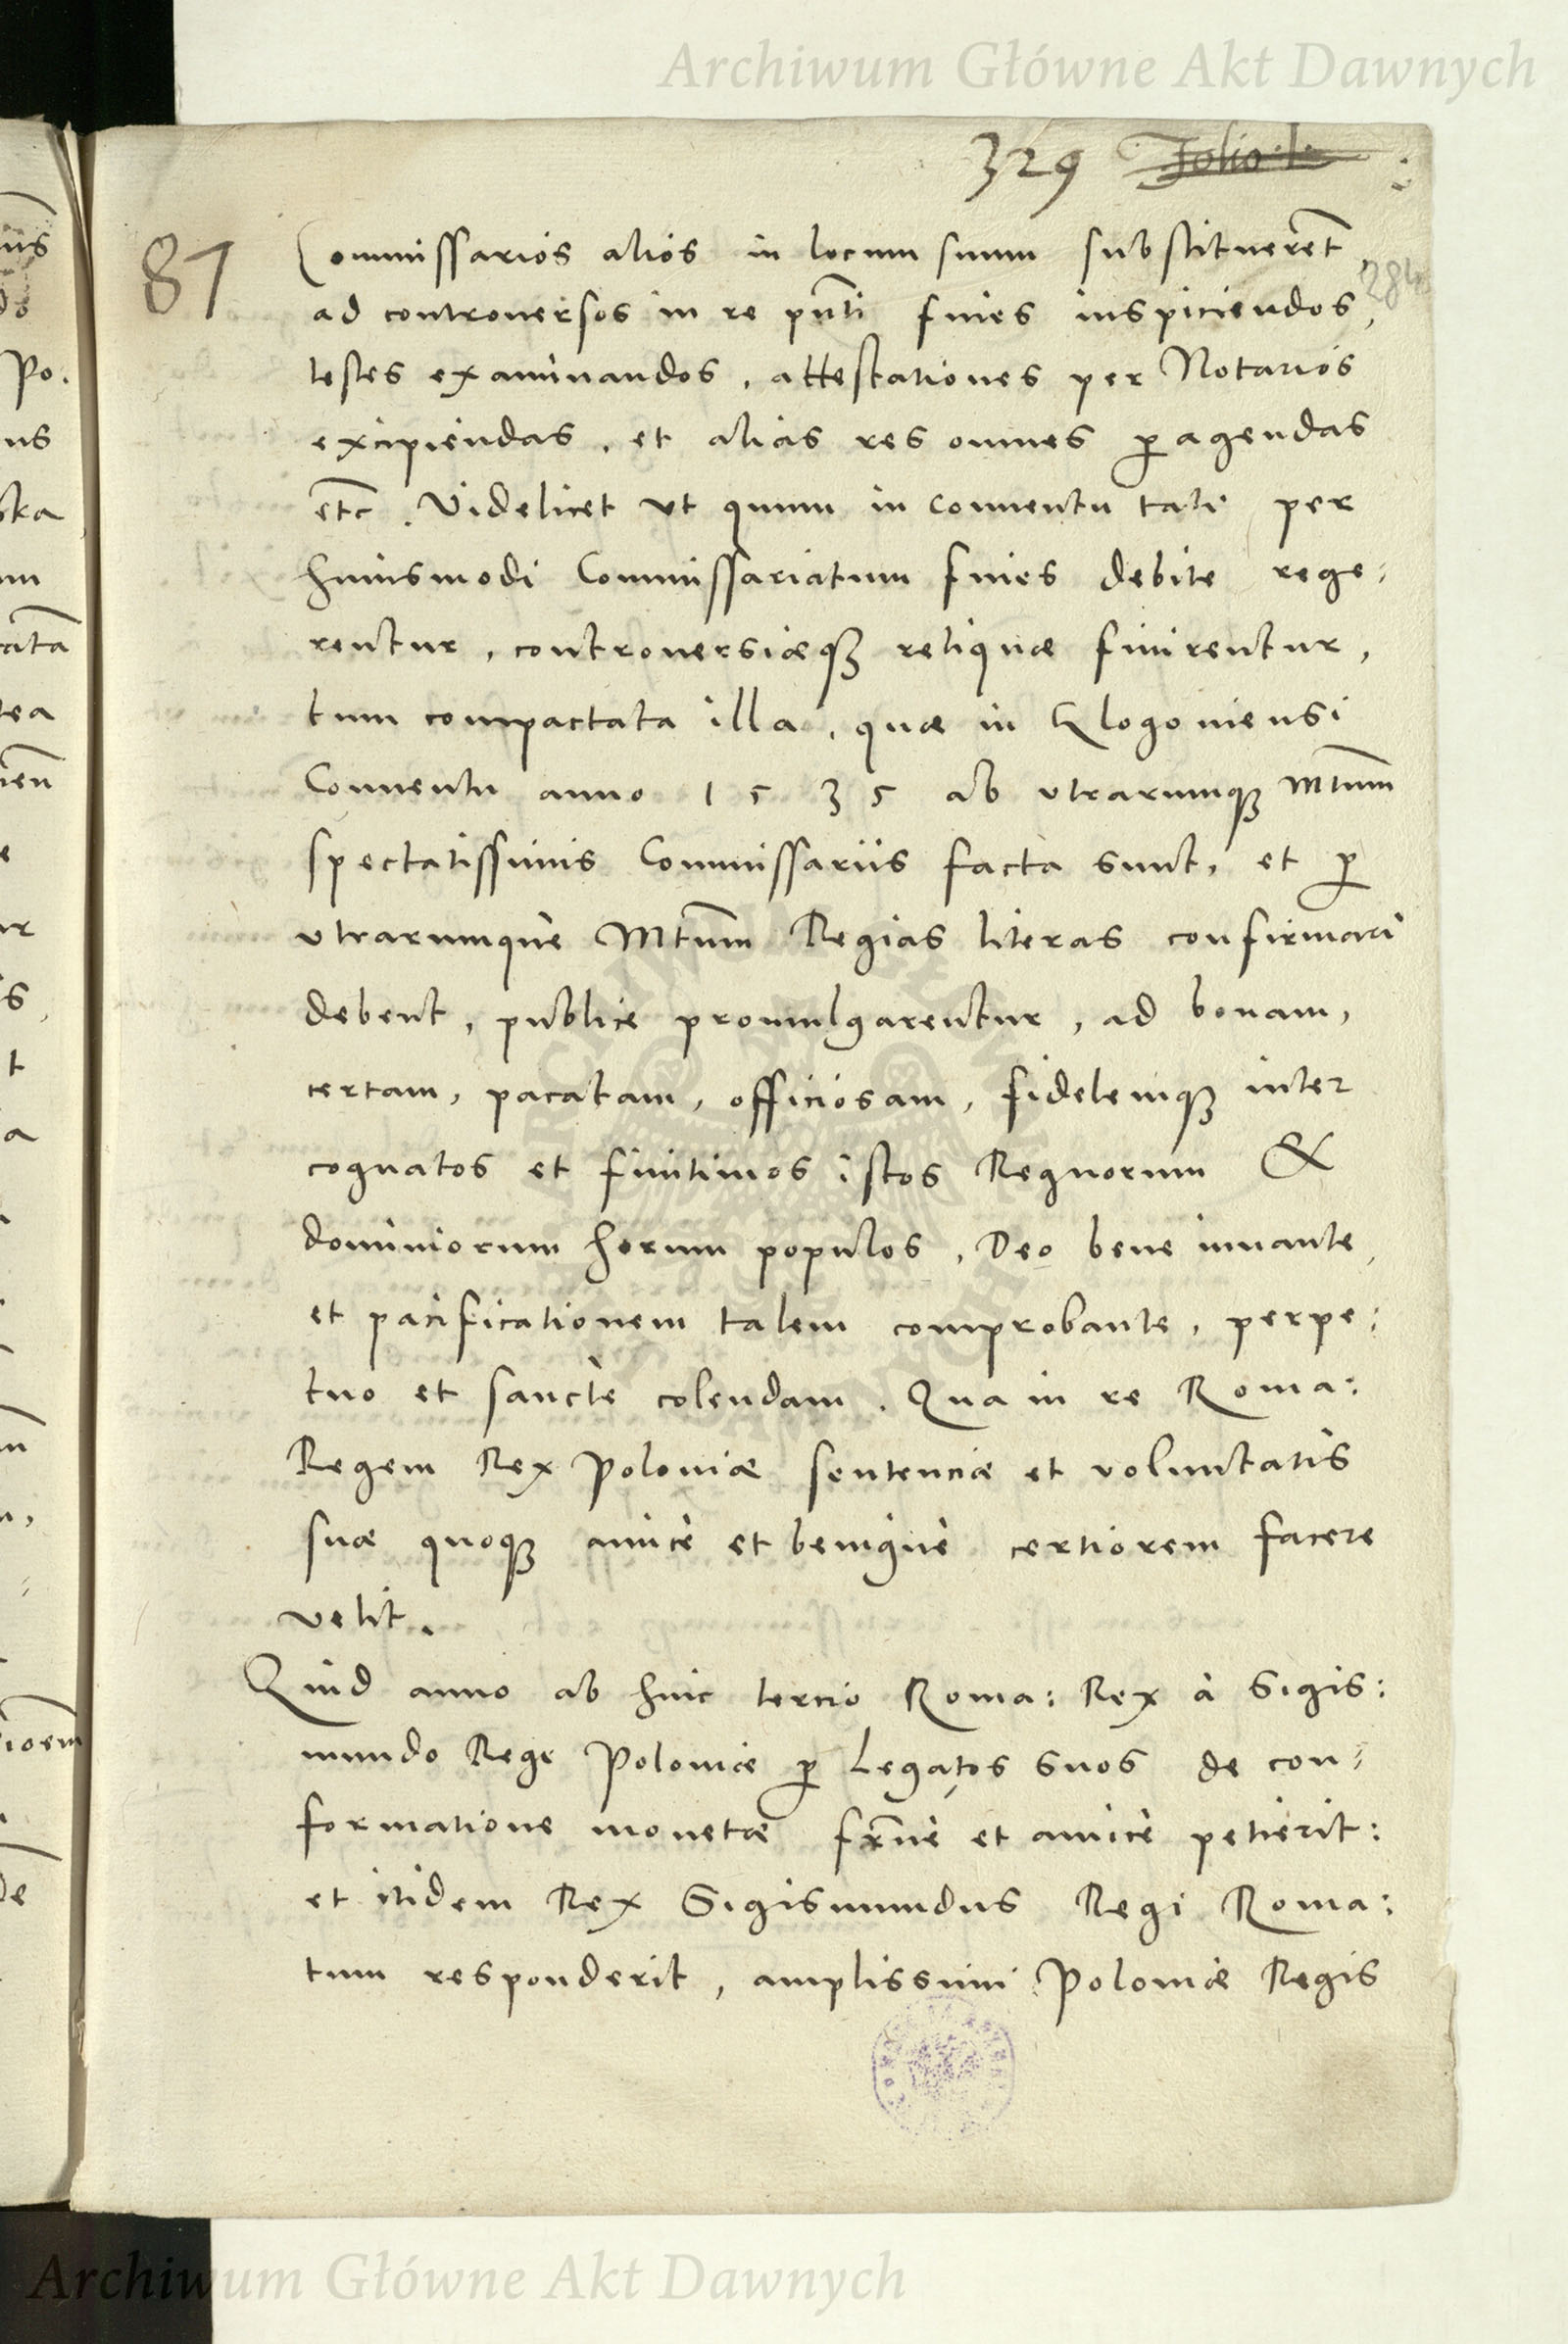 Archiwum Główne Akt Dawnych
329 Folio
87
284
Commissarios alios in locum suum substituerent,
ad controuersos in re pnti fines inspiciendos,
testes examinandos, attestationes per Notarios
excipiendas, et alias res omnes pagendas
etc. Videlicet vt quum in conuentu tali per
huiusmodi Commissariatum fines debite rege:
rentur, controuersiæq3 reliquæ finirentur,
tum compactata illa, quæ in Glogoniensi
Conuentu anno 1535 ab vtrarumq3 Mtum
spectatissimis Commissariis facta sunt, et p
vtrarumque Mtum Regias literas confirmari
debent, publice promulgarentur, ad bonam,
certam, pacatam, officiosam, fidelemq3 inter
cognatos et finitimos istos Regnorum &
dominiorum horum populos, Deo bene iuuante,
et pacificationem talem comprobante, perpe:
tuo et sancte colendam. Qua in re Roma:
Regem Rex Poloniæ sentenciæ et voluntatis
suæ quoq3 amice et benigne certiorem facere
velit.
Quid anno ab hinc tercio Roma: Rex à Sigis:
mundo Rege Poloniæ p Legatos suos de con:
formatione monetæ frne et amice petierit:
et itidem Rex Sigismundus Regi Roma:
tum responderit, amplissimi Poloniæ Regis
Archiwum Główne Akt Dawnych